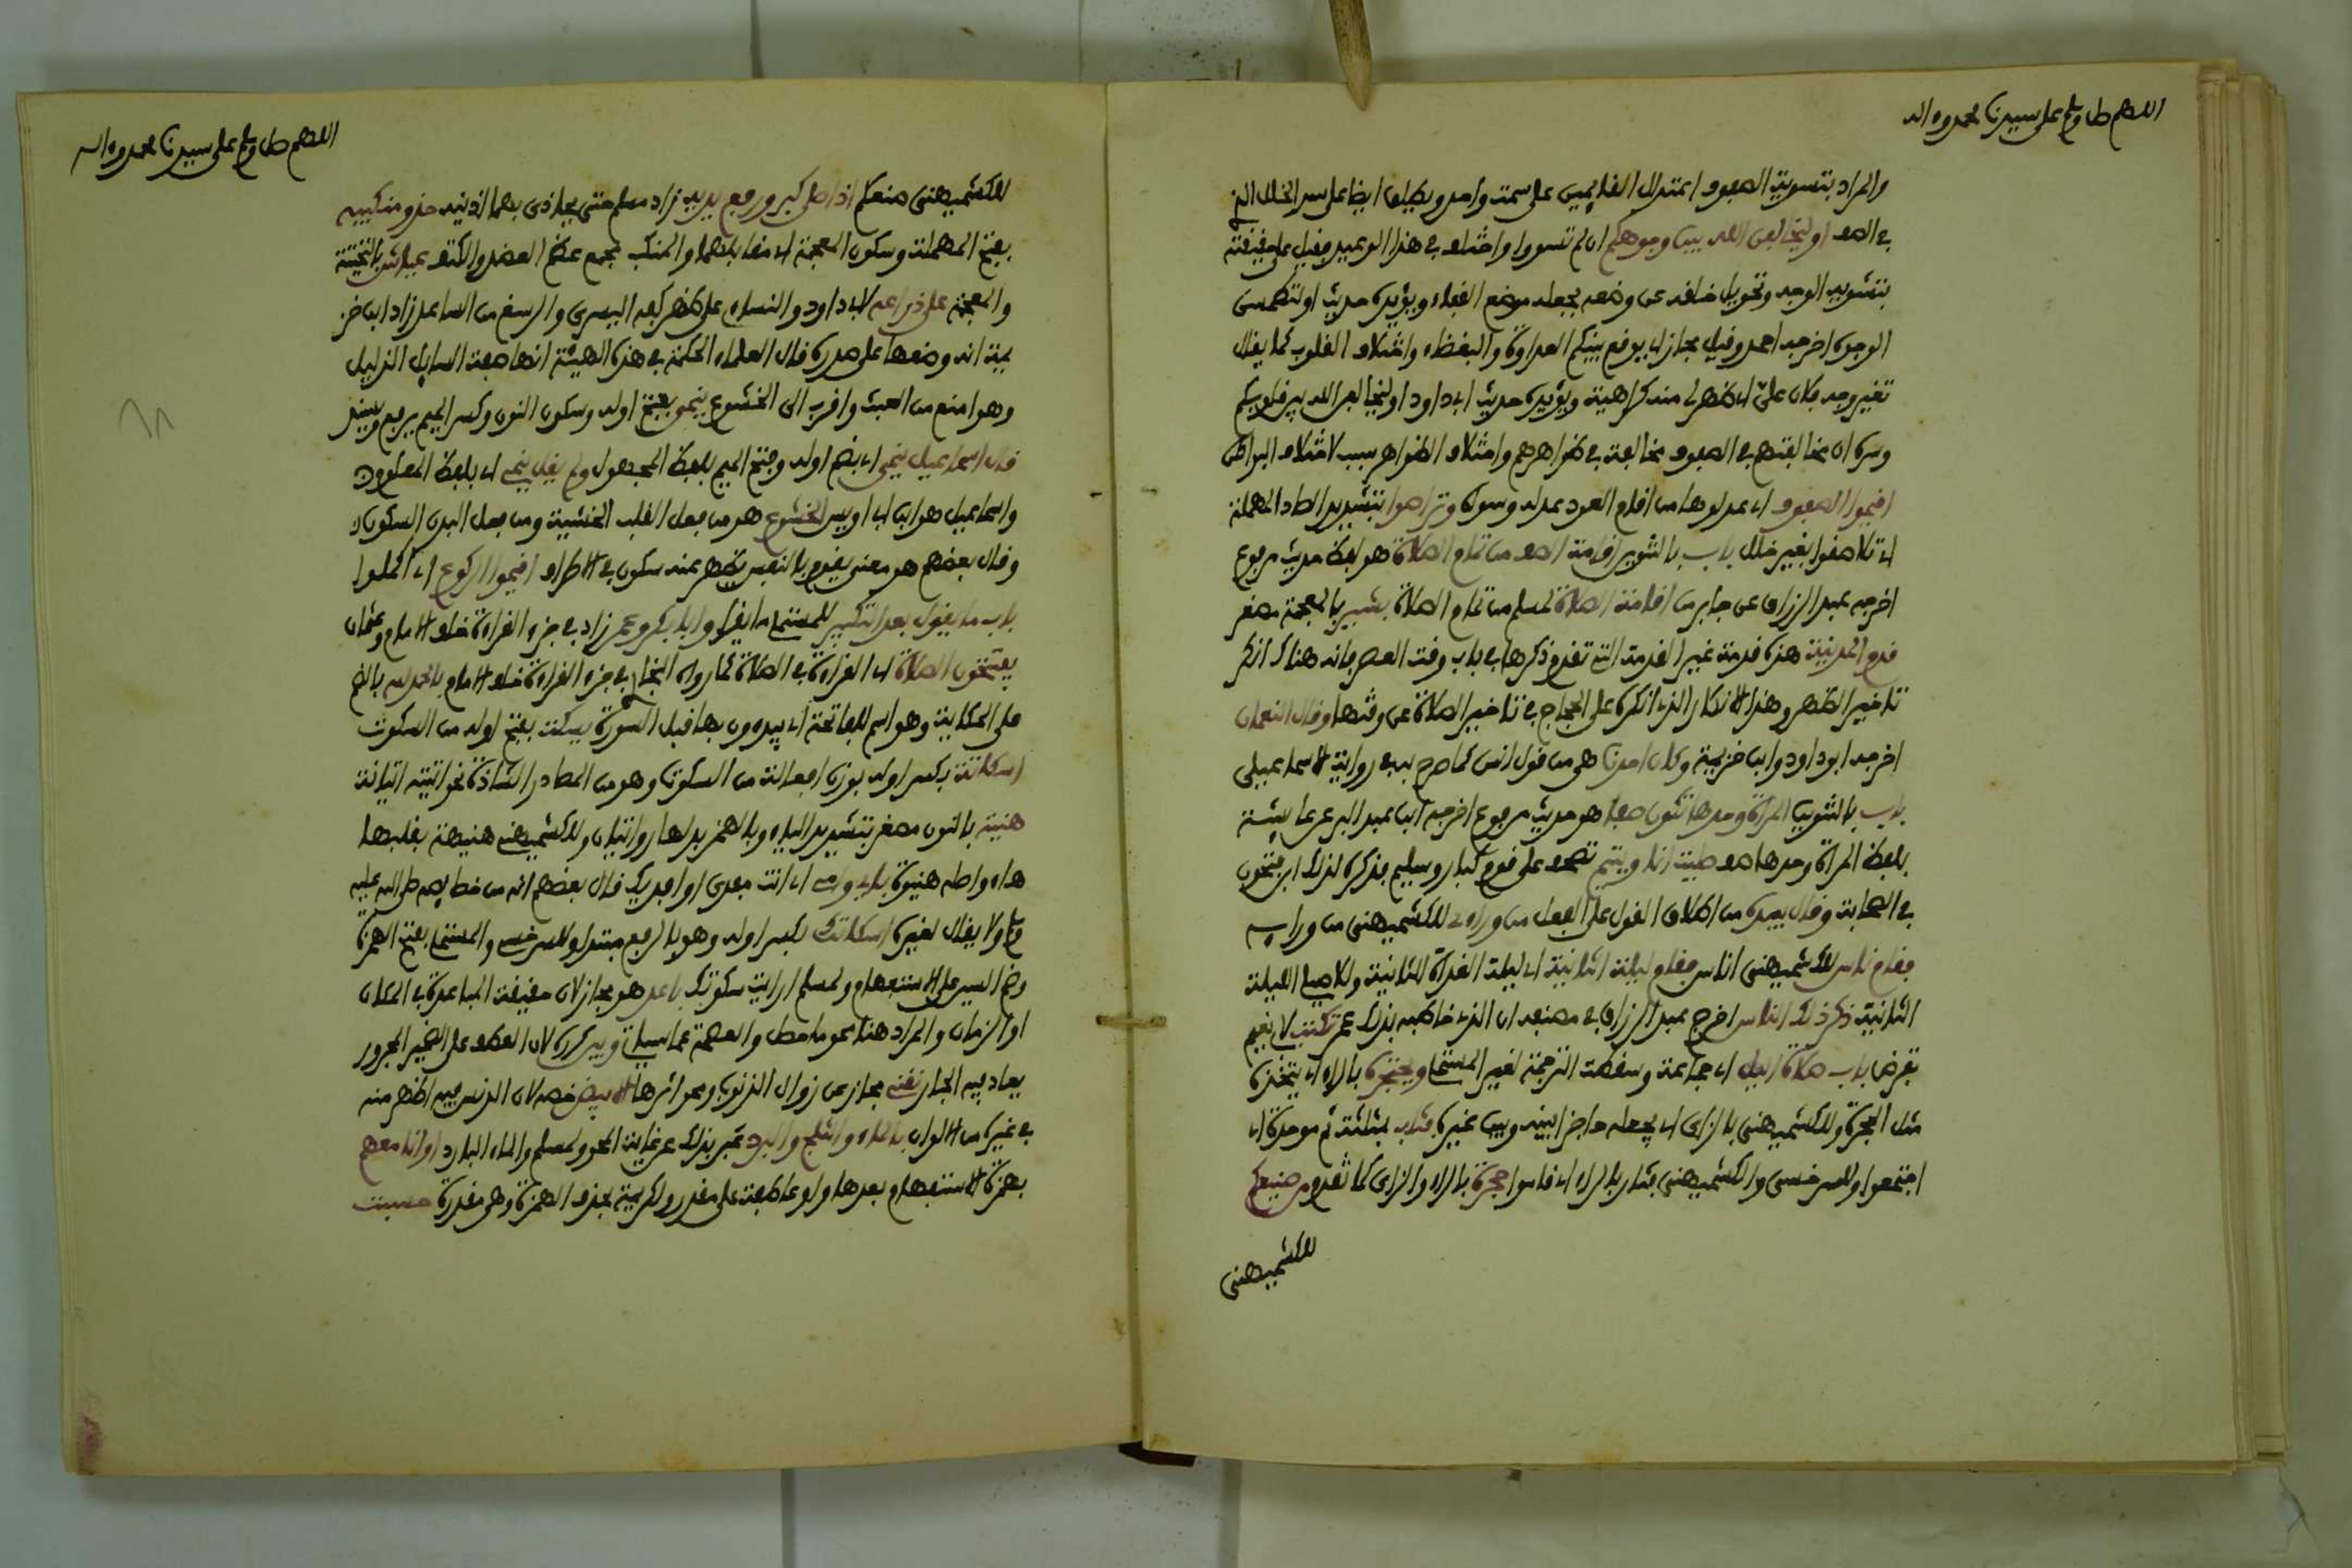 اللهم صل وسلم على سيدنا محمد وءاله
والمراد بتسوية الصفوف اعتدال القايمين على سمت واحد ويطلق ايضا على سد الخلل الذي
في الصف او ليخالفن الله بين وجوهكم ان لم تسووا واختلف في هذا الوعيد فقيل على حقيقته
بتشويه الوجه وتحويل خلقه عن وضعه بجعله موضع القفاء ويؤيده حديث او لتطمسن
الوجوه اخرجه احمد وقيل مجاز اي يوقع بينكم العداوة والبغضاء واختلاف القلوب كما يقال
تغير وجه فلان علي اي ظهر لي منه كراهية ويؤيده حديث ابي داود او ليخالفن الله بين قلوبكم
وسره ان مخالفتهم في الصفوف مخالفة في ظواهرهم واختلاف الظواهر سبب لاختلاف البواطن
اقيموا الصفوف اي عدلوها من اقام العود عدله وسواه وتراصوا بتشديد الصاد المهملة
اي تلاصقوا بغير خلل باب بالتنوين اقامة الصف من تمام الصلاة هو لفظ حديث مرفوع
اخرجه عبد الرزاق عن جابر من اقامة الصلاة لمسلم من تمام الصلاة بشير بالمعجمة مصغر
قدم المدينة هذه قدمة غير القدمة التي تقدم ذكرها في باب وقت العصر فانه هناك انكر
تاخير الظهر وهذا الانكار الذي انكره على الحجاج في تاخير الصلاة عن وقتها وقال النعمان
اخرجه ابو داود وابن خزيمة وكان احدنا هي من قول انس كما صرح به في رواية الاسماعيلي
باب بالتنوين المراة وحدها تكون صفا هو حديث مرفوع اخرجه ابن عبد البر عن عايشة
بلفظ المراة وحدها صف صليت انا ويتيم تصحف على قوم كبار وسليم فذكره لذلك ابن فتحون
في الصحابة وقال بيده من اطلاق القول على الفعل من وراءي للكشميهني من ورايه
فقام ناس للكشميهني اناس فقام ليلة الثانية اي ليلة الغداة الثانية وللاصيلي الليلة
الثانية ذكر ذلك الناس اخرج عبد الرزاق في مصنفه ان الذي خاطبه بذلك عمر تكتب لا بقيم
بقرض باب صلاة الليل اي جماعة وسقطت الترجمة لغير المستملي ويحتجره بالراء اي يتخذه
مثل الحجرة وللكشميهني بالزاي اي يجعله حاجزا بينه وبين غيره فثاب بمثلثة ثم موحدة اي
اجتمعوا وللسرخسي والكشميهني فثار بالراء اي قاموا حجرة بالراء والزاي كما تقدم من صنيعكم
للكشميهني
اللهم صل وسلم على سيدنا محمد وءاله
للكشميهني صنعكم اذا صلى كبر ورفع يديه زاد مسلم حتى يحاذي بهما اذنيه حذو منكبيه
بفتح المهملة وسكون المعجمة اي مقابلهما والمنكب مجمع عظم العضد والكتف عياش بالتحتية
والمعجمة على ذراعه لابي داود والنساءي على ظهر كفه اليسرى والرسغ من الساعد زاد ابن خز
يمة انه وضعها على صدره قال العلماء الحكمة في هذه الهيئة انها صفة السايل الذليل
وهو امنع من العبث واقرب الى الخشوع ينمي بفتح اوله وسكون النون وكسر الميم يرفع ويسند
قال اسماعيل ينمى اي بضم اوله وفتح الميم بلفظ المجهول ولم يقل ينمي اي بلفظ المعلوم
واسماعيل هو ابن ابي اويس الخشوع هو من فعل القلب الخشية ومن فعل البدن السكون
وقال بعضهم هو معنى يقوم بالنفس يظهر عنه سكون في الاطراف اقيموا الركوع اي اكملوا
باب ما يقول بعد التكبير للمستملي ما يقرا وابا بكر وعمر زاد في جزء القراءة خلف الامام وعثمان
يفتتحون الصلاة اي القراءة في الصلاة كما رواه البخاري في جزء القراءة خلف الامام بالحمد لله بالضم
على الحكاية وهو اسم للفاتحة اي يبدءون بها قبل السورة يسكت بفتح اوله من السكوت
اسكاتة بكسر اوله بوزن افعالة من السكوت وهو من المصادر الشاذة نحو اثبته اثباتة
هنية بالنون مصغر بتشديد الياء وبالهمز بدلها روايتان وللكشميهني هنيهة بقلبها
هاء واصله هنيوة بابي وامي اي انت مفدى او افديك قال بعضهم انه من خصايصه صلى الله عليه
وسلم ولا يقال لغيره اسكاتك بكسر اوله وهو بالرفع مبتدا وللسرخسي والمستملي بفتح الهمزة
وضم السين على الاستفهام ولمسلم ارايت سكوتك باعد هو مجاز لان حقيقة المباعدة في المكان
او الزمان والمراد هنا محو ما حصل والعصمة عما سياتي وبين كرره لان العطف على الضمير المجرور
يعاد فيه الجار نقني مجاز عن زوال الذنوب ومحو اثرها الابيض خصه لان الدنس فيه اظهر منه
في غيره من الالوان بالماء والثلج والبرد عبر بذلك عن غاية المحو ولمسلم والماء البارد او انا معهم
بهمزة الاستفهام بعدها واو عاطفة على مقدر ولكريمة بحذف الهمزة وهي مقدرة حسبت